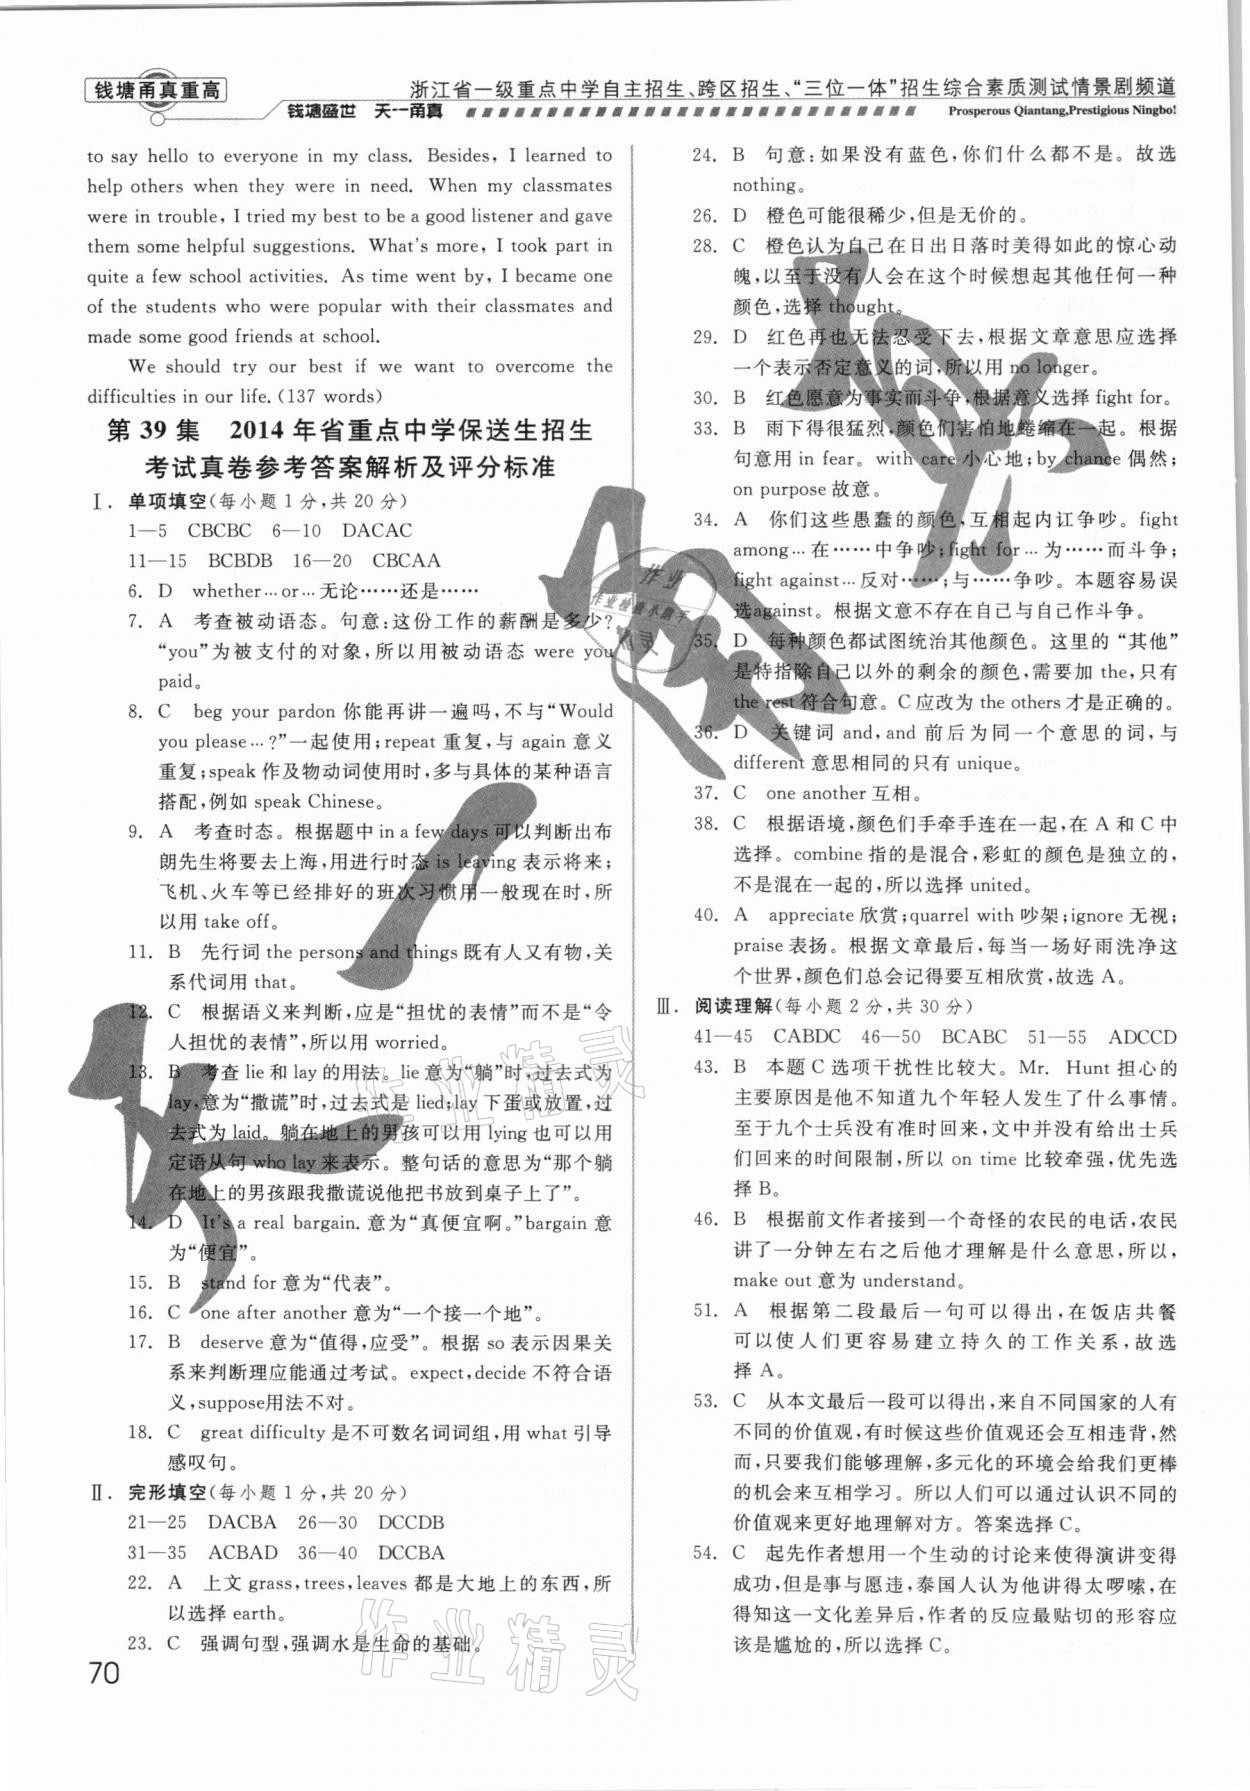 钱塘甬真重高
浙江省一级重点中学自主招生、跨区招生、“三位一体”招生综合素质测试情景剧频道
钱塘盛世 天一甬真
Prosperous Qiantang,Prestigious Ningbo!
to say hello to everyone in my class. Besides, I learned to
help others when they were in need. When my classmates
were in trouble, I tried my best to be a good listener and gave
them some helpful suggestions. What's more, I took part in
quite a few school activities. As time went by, I became one
of the students who were popular with their classmates and
made some good friends at school.
We should try our best if we want to overcome the
difficulties in our life. (137 words)
第 39 集 2014 年省重点中学保送生招生
考试真卷参考答案解析及评分标准
Ⅰ. 单项填空(每小题 1 分,共 20 分)
1—5 CBCBC 6—10 DACAC
11—15 BCBDB 16—20 CBCAA
6. D whether…or…无论……还是……
7. A 考查被动语态。句意:这份工作的薪酬是多少?
“you”为被支付的对象,所以用被动语态 were you
paid。
8. C beg your pardon 你能再讲一遍吗,不与“Would
you please…?”一起使用;repeat 重复,与 again 意义
重复;speak 作及物动词使用时,多与具体的某种语言
搭配,例如 speak Chinese。
9. A 考查时态。根据题中 in a few days 可以判断出布
朗先生将要去上海,用进行时态 is leaving 表示将来;
飞机、火车等已经排好的班次习惯用一般现在时,所
以用 take off。
11. B 先行词 the persons and things 既有人又有物,关
系代词用 that。
12. C 根据语义来判断,应是“担忧的表情”而不是“令
人担忧的表情”,所以用 worried。
13. B 考查 lie 和 lay 的用法。lie 意为“躺”时,过去式为
lay,意为“撒谎”时,过去式是 lied;lay 下蛋或放置,过
去式为 laid。躺在地上的男孩可以用 lying 也可以用
定语从句 who lay 来表示。整句话的意思为“那个躺
在地上的男孩跟我撒谎说他把书放到桌子上了”。
14. D It's a real bargain. 意为“真便宜啊。”bargain 意
为“便宜”。
15. B stand for 意为“代表”。
16. C one after another 意为“一个接一个地”。
17. B deserve 意为“值得,应受”。根据 so 表示因果关
系来判断理应能通过考试。expect,decide 不符合语
义,suppose用法不对。
18. C great difficulty 是不可数名词词组,用 what 引导
感叹句。
Ⅱ. 完形填空(每小题 1 分,共 20 分)
21—25 DACBA 26—30 DCCDB
31—35 ACBAD 36—40 DCCBA
22. A 上文 grass,trees,leaves 都是大地上的东西,所
以选择 earth。
23. C 强调句型,强调水是生命的基础。
70
24. B 句意:如果没有蓝色,你们什么都不是。故选
nothing。
26. D 橙色可能很稀少,但是无价的。
28. C 橙色认为自己在日出日落时美得如此的惊心动
魄,以至于没有人会在这个时候想起其他任何一种
颜色,选择 thought。
29. D 红色再也无法忍受下去,根据文章意思应选择
一个表示否定意义的词,所以用 no longer。
30. B 红色愿意为事实而斗争,根据意义选择 fight for。
33. B 雨下得很猛烈,颜色们害怕地蜷缩在一起。根据
句意用 in fear。with care 小心地;by chance 偶然;
on purpose 故意。
34. A 你们这些愚蠢的颜色,互相起内讧争吵。fight
among…在……中争吵;fight for…为……而斗争;
fight against…反对……;与……争吵。本题容易误
选against。根据文意不存在自己与自己作斗争。
35. D 每种颜色都试图统治其他颜色。这里的“其他”
是特指除自己以外的剩余的颜色,需要加 the,只有
the rest 符合句意。C 应改为 the others 才是正确的。
36. D 关键词 and,and 前后为同一个意思的词,与
different 意思相同的只有 unique。
37. C one another 互相。
38. C 根据语境,颜色们手牵手连在一起,在 A 和 C 中
选择。combine 指的是混合,彩虹的颜色是独立的,
不是混在一起的,所以选择 united。
40. A appreciate 欣赏;quarrel with 吵架;ignore 无视;
praise 表扬。根据文章最后,每当一场好雨洗净这
个世界,颜色们总会记得要互相欣赏,故选 A。
Ⅲ. 阅读理解(每小题 2 分,共 30 分)
41—45 CABDC 46—50 BCABC 51—55 ADCCD
43. B 本题 C 选项干扰性比较大。Mr. Hunt 担心的
主要原因是他不知道九个年轻人发生了什么事情。
至于九个士兵没有准时回来,文中并没有给出士兵
们回来的时间限制,所以 on time 比较牵强,优先选
择 B。
46. B 根据前文作者接到一个奇怪的农民的电话,农民
讲了一分钟左右之后他才理解是什么意思,所以,
make out 意为 understand。
51. A 根据第二段最后一句可以得出,在饭店共餐
可以使人们更容易建立持久的工作关系,故选
择 A。
53. C 从本文最后一段可以得出,来自不同国家的人有
不同的价值观,有时候这些价值观还会互相违背,然
而,只要我们能够理解,多元化的环境会给我们更棒
的机会来互相学习。所以人们可以通过认识不同的
价值观来更好地理解对方。答案选择 C。
54. C 起先作者想用一个生动的讨论来使得演讲变得
成功,但是事与愿违,泰国人认为他讲得太啰嗦,在
得知这一文化差异后,作者的反应最贴切的形容应
该是尴尬的,所以选择 C。
作业精灵
作业精灵